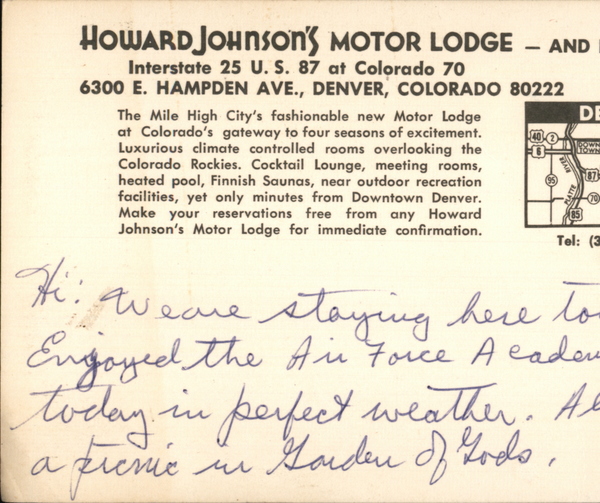 HOWARD JOHNSON'S MOTOR LODGE — AND
Interstate 25 U. S. 87 at Colorado 70
6300 E. HAMPDEN AVE., DENVER, COLORADO 80222
The Mile High City's fashionable new Motor Lodge
at Colorado's gateway to four seasons of excitement.
Luxurious climate controlled rooms overlooking the
Colorado Rockies. Cocktail Lounge, meeting rooms,
heated pool, Finnish Saunas, near outdoor recreation
facilities, yet only minutes from Downtown Denver.
Make your reservations free from any Howard
Johnson's Motor Lodge for immediate confirmation.
DE
40
2
6
DOWN
TOWN
95
PLATTE
RIVER
87
70
85
Tel: (3
Hi: We are staying here to
Enjoyed the Air Force Academ
today in perfect weather. Al
a picnic in Garden of Gods.